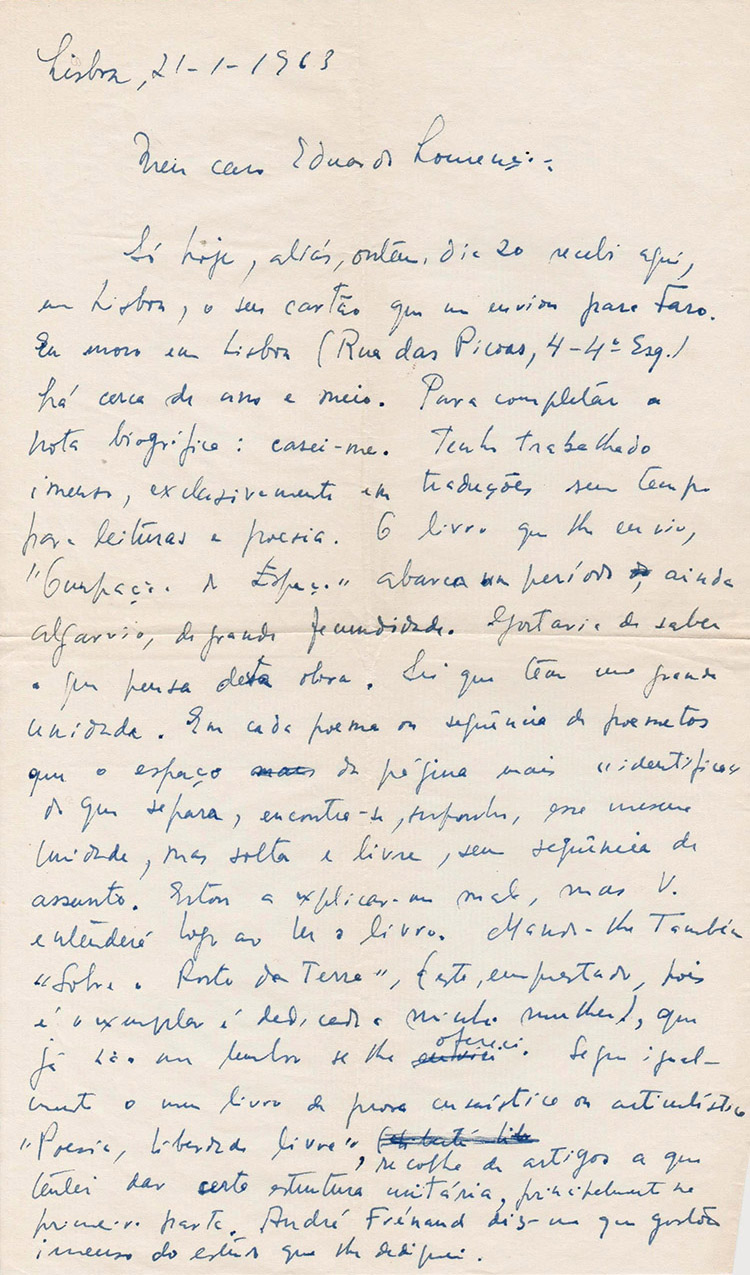 Lisboa, 21-1-1963
Meu caro Eduardo Lourenço:
Só hoje, aliás, ontem, dia 20 recebi aqui,
em Lisboa, o seu cartão que me enviou para Faro.
Eu moro em Lisboa (Rua das Picoas, 4-4º Esq.)
há cerca de ano e meio. Para completar a
nota biográfica: casei-me. Tenho trabalhado
imenso, exclusivamente em traduções sem tempo
para leituras e poesia. O livro que lhe envio,
"Ocupação do Espaço" abarca um período, ainda
algarvio, de grande fecundidade. Gostaria de saber
o que pensa desta obra. Sei que tem uma grande
unidade. Em cada poema ou seqüência de poemetos
que o espaço da página mais "identifica"
do que separa, encontra-se, suponho, essa mesma
unidade, mas solta e livre, sem seqüência de
assunto. Estou a explicar-me mal, mas V.
entenderá logo ao ler o livro. Mando-lhe também
"Sobre o Rosto da Terra", (este, emprestado, pois
é o exemplar é dedicado a minha mulher), que
já não me lembro se lhe ofereci. Segue igual-
mente o meu livro de prosa ensaístico ou articulístico
"Poesia, Liberdade livre", recolha de artigos a que
tentei dar certa estrutura unitária, principalmente na
primeira parte. André Frénaud diz-me que gostou
imenso do estudo que lhe dediquei.